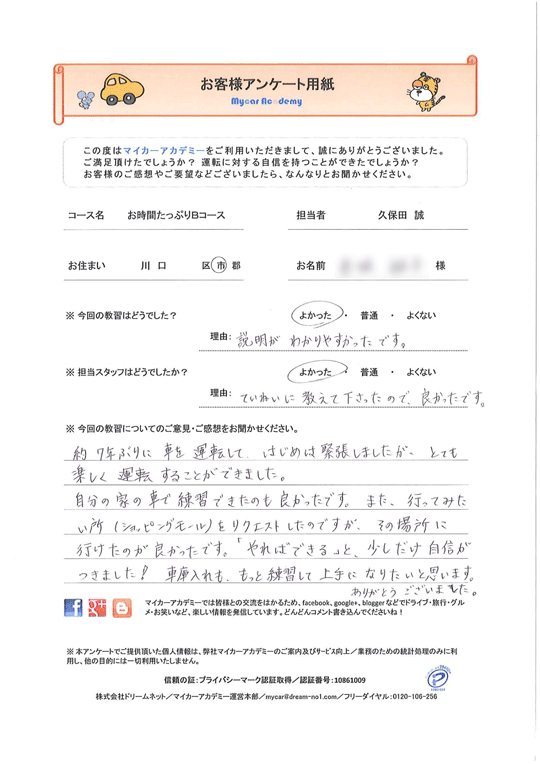 お客様アンケート用紙
Mycar Academy
この度はマイカーアカデミーをご利用いただきまして、誠にありがとうございました。
ご満足頂けたでしょうか？ 運転に対する自信を持つことができたでしょうか？
お客様のご感想やご要望などございましたら、なんなりとお聞かせください。
コース名 お時間たっぷりBコース 担当者 久保田 誠
お住まい 川口 区 市 郡 お名前 様
※ 今回の教習はどうでした？ よかった ・ 普通 ・ よくない
理由: 説明が わかりやすかった です。
※ 担当スタッフはどうでしたか？ よかった ・ 普通 ・ よくない
理由: ていねいに 教えて下さったので、良かったです。
※ 今回の教習についてのご意見・ご感想をお聞かせください。
約7年ぶりに 車を 運転して、はじめは緊張しましたが、とても
楽しく 運転 することができました。
自分の家の車で練習できたのも良かったです。また、行ってみた
い所（ショッピングモール）をリクエストしたのですが、その場所に
行けたのが良かったです。「やればできる」と、少しだけ 自信が
つきました！ 車庫入れも、もっと練習して 上手に なりたいと思います。
ありがとう ございました。
マイカーアカデミーでは皆様との交流をはかるため、facebook、google+、blogger などでドライブ・旅行・グル
メ・お笑いなど、楽しい情報を発信しています。どんどんコメント書き込んでくださいね！
※ 本アンケートでご提供頂いた個人情報は、弊社マイカーアカデミーのご案内及びサービス向上／業務のための統計処理のみに利
用し、他の目的には一切利用いたしません。
信頼の証：プライバシーマーク認証取得／認証番号：10861009
株式会社ドリームネット／マイカーアカデミー運営本部／mycar@dream-no1.com／フリーダイヤル：0120-106-256